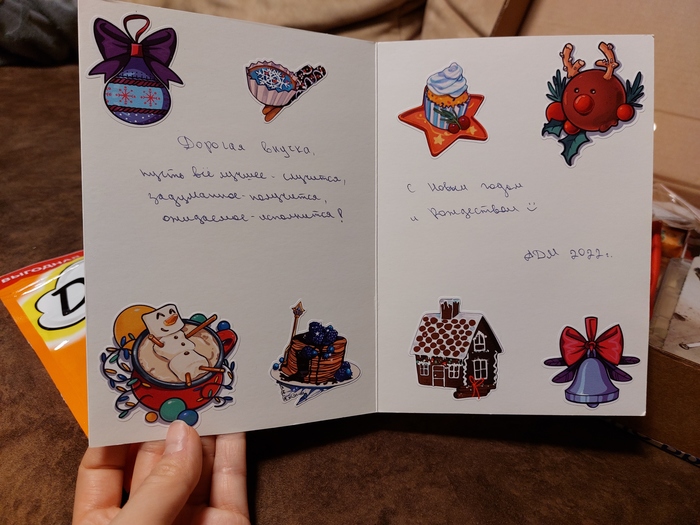 Дорогая внучка,
пусть всё лучшее - случится,
задуманное - получится,
ожидаемое - исполнится!
С Новым годом
и Рождеством
АДМ 2022г.
ВЫГОДНАЯ